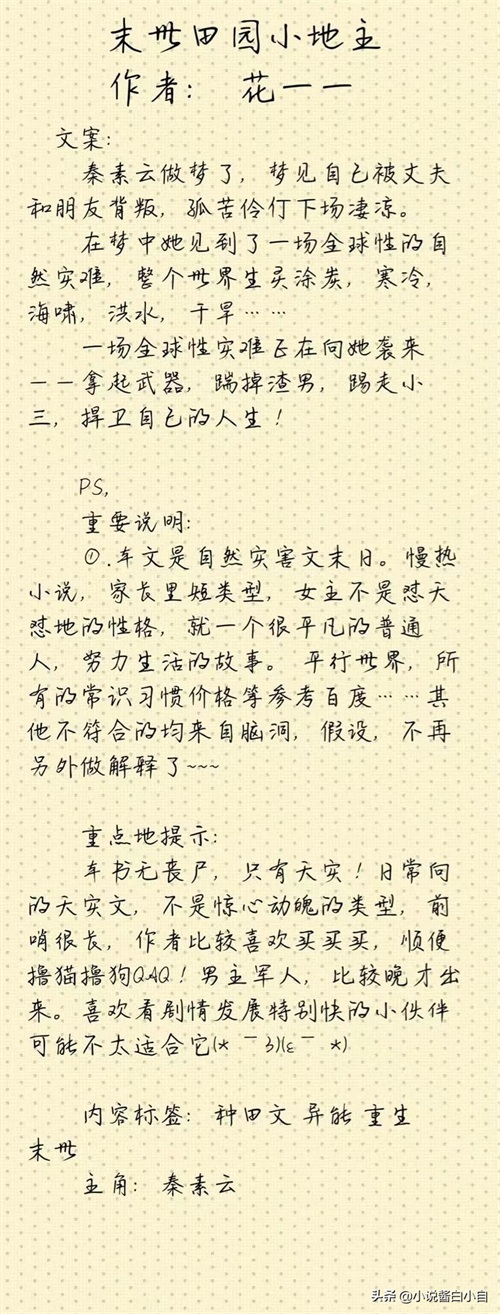 末世田园小地主
作者： 花一一
文案：
秦素云做梦了，梦见自己被丈夫
和朋友背叛，孤苦伶仃下场凄凉。
在梦中她见到了一场全球性的自
然灾难，整个世界生灵涂炭，寒冷，
海啸，洪水，干旱……
一场全球性灾难正在向她袭来
——拿起武器，踹掉渣男，踢走小
三，捍卫自己的人生！
PS，
重要说明：
①.本文是自然灾害文末日。慢热
小说，家长里短类型，女主不是怼天
怼地的性格，就一个很平凡的普通
人，努力生活的故事。平行世界，所
有的常识习惯价格等参考百度……其
他不符合的均来自脑洞，假设，不再
另外做解释了~~~
重点地提示：
本书无丧尸，只有天灾！日常向
的天灾文，不是惊心动魄的类型，前
哨很长，作者比较喜欢买买买，顺便
撸猫撸狗QAQ！男主军人，比较晚才出
来。喜欢看剧情发展特别快的小伙伴
可能不太适合它(*￣3)(ε￣*)
内容标签： 种田文 异能 重生
末世
主角： 秦素云
头条 @小说酱白小自